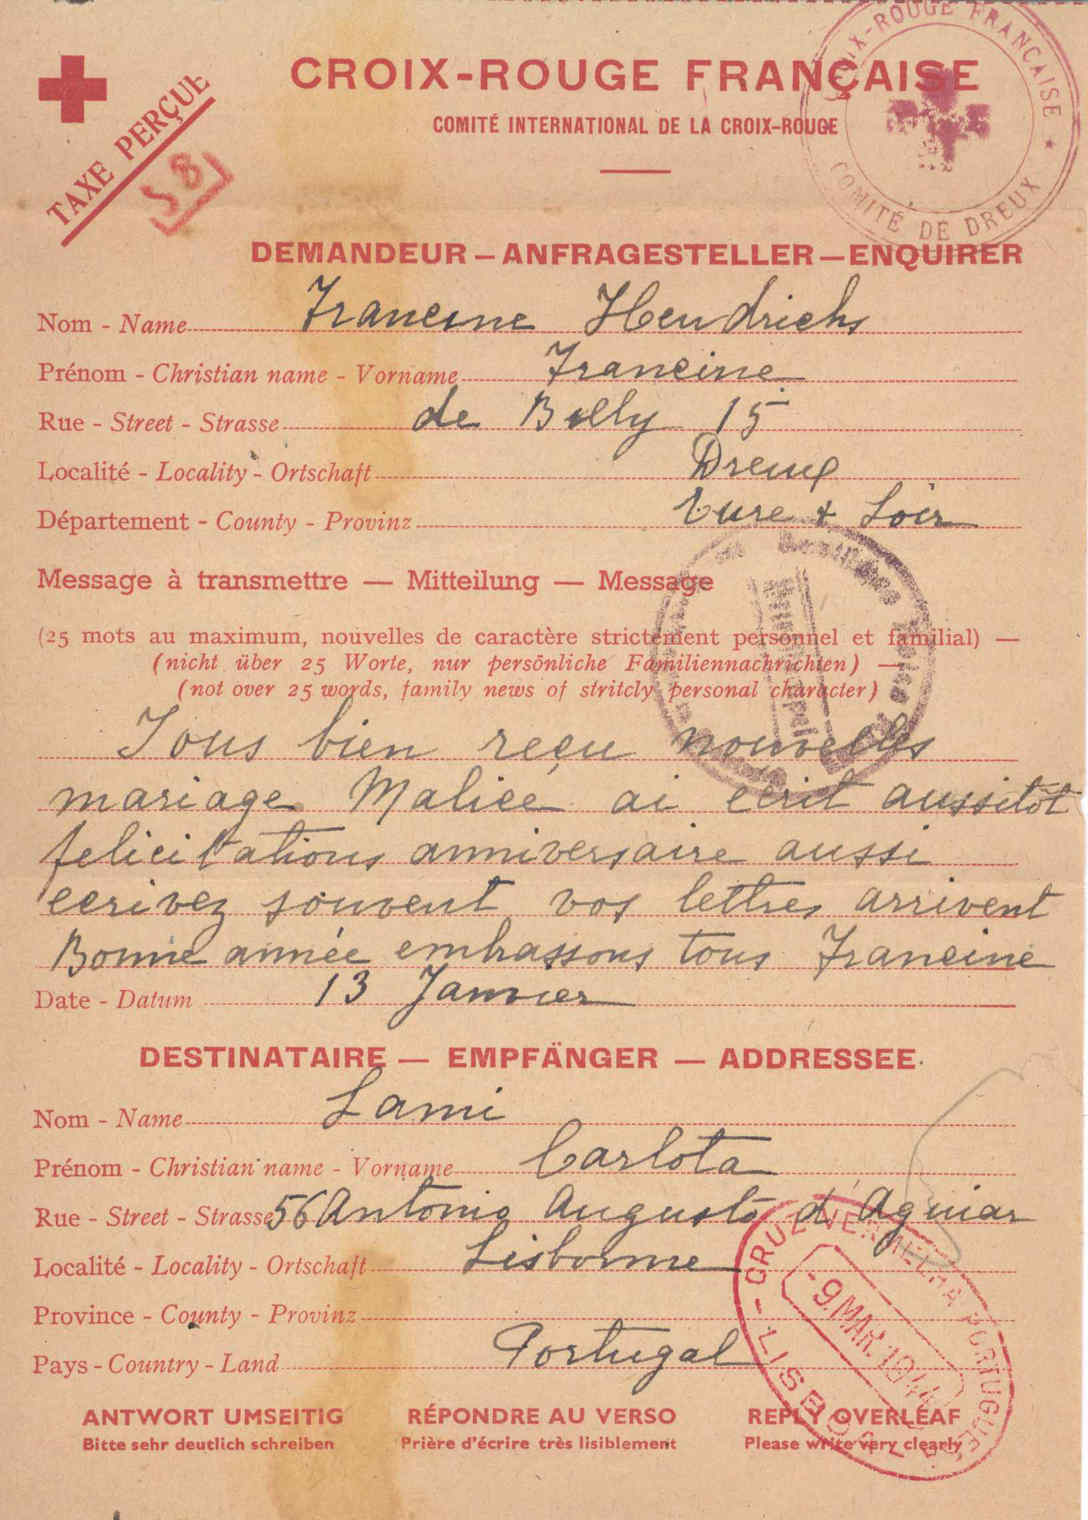 CROIX-ROUGE FRANÇAISE
COMITÉ INTERNATIONAL DE LA CROIX-ROUGE
TAXE PERÇUE
58
CROIX-ROUGE FRANÇAISE
COMITÉ DE DREUX
DEMANDEUR – ANFRAGESTELLER – ENQUIRER
Nom - Name Francine Hendrichs
Prénom - Christian name - Vorname Francine
Rue - Street - Strasse de Billy 15
Localité - Locality - Ortschaft Dreux
Département - County - Provinz Eure & Loir
Message à transmettre — Mitteilung — Message
(25 mots au maximum, nouvelles de caractère strictement personnel et familial) —
(nicht über 25 Worte, nur persönliche Familiennachrichten) —
(not over 25 words, family news of stritcly personal character)
Tous bien reçu nouvelles
mariage ai écrit aussitôt
felicitations anniversaire aussi
ecrivez souvent vos lettres arrivent
Bonne année embrassons tous Francine
Date - Datum 13 Janvier
DESTINATAIRE — EMPFÄNGER — ADDRESSEE
Nom - Name Lami
Prénom - Christian name - Vorname Carlota
Rue - Street - Strasse 56 Antonio Augusto d'Aguiar
Localité - Locality - Ortschaft Lisbonne
Province - County - Provinz
Pays - Country - Land Portugal
CRUZ VERMELHA PORTUGUESA
-9.MAR.1944
LISBOA
ANTWORT UMSEITIG RÉPONDRE AU VERSO REPLY OVERLEAF
Bitte sehr deutlich schreiben Prière d'écrire très lisiblement Please write very clearly